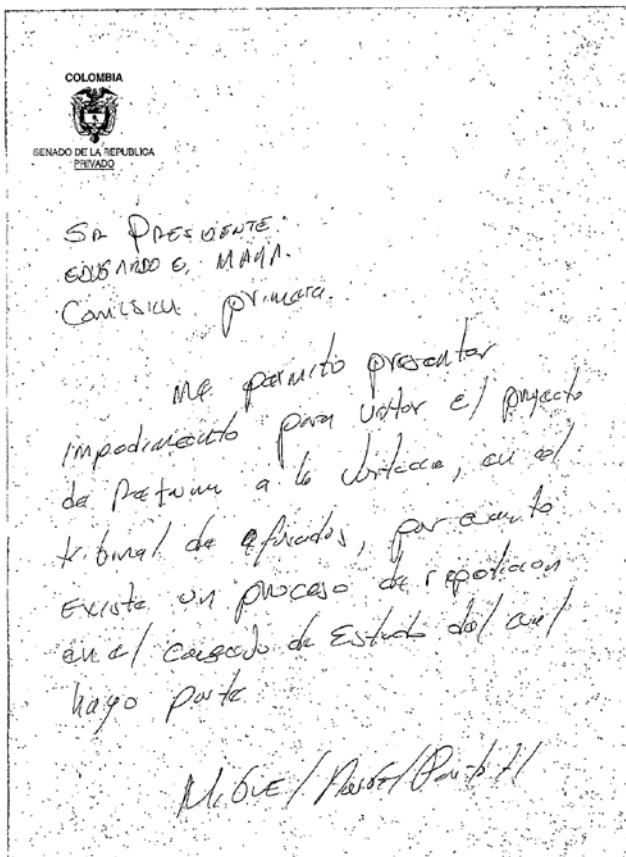 COLOMBIA
SENADO DE LA REPUBLICA
PRIVADO
SR PRESIDENTE.
EDUARDO E. MAYA.
Comision primera.
Me permito presentar
impedimento para votar el proyecto
de Reforma a la Justicia, en el
tribunal de aforados, por cuanto
Existe un proceso de repeticion
en el consejo de Estado del cual
hago parte